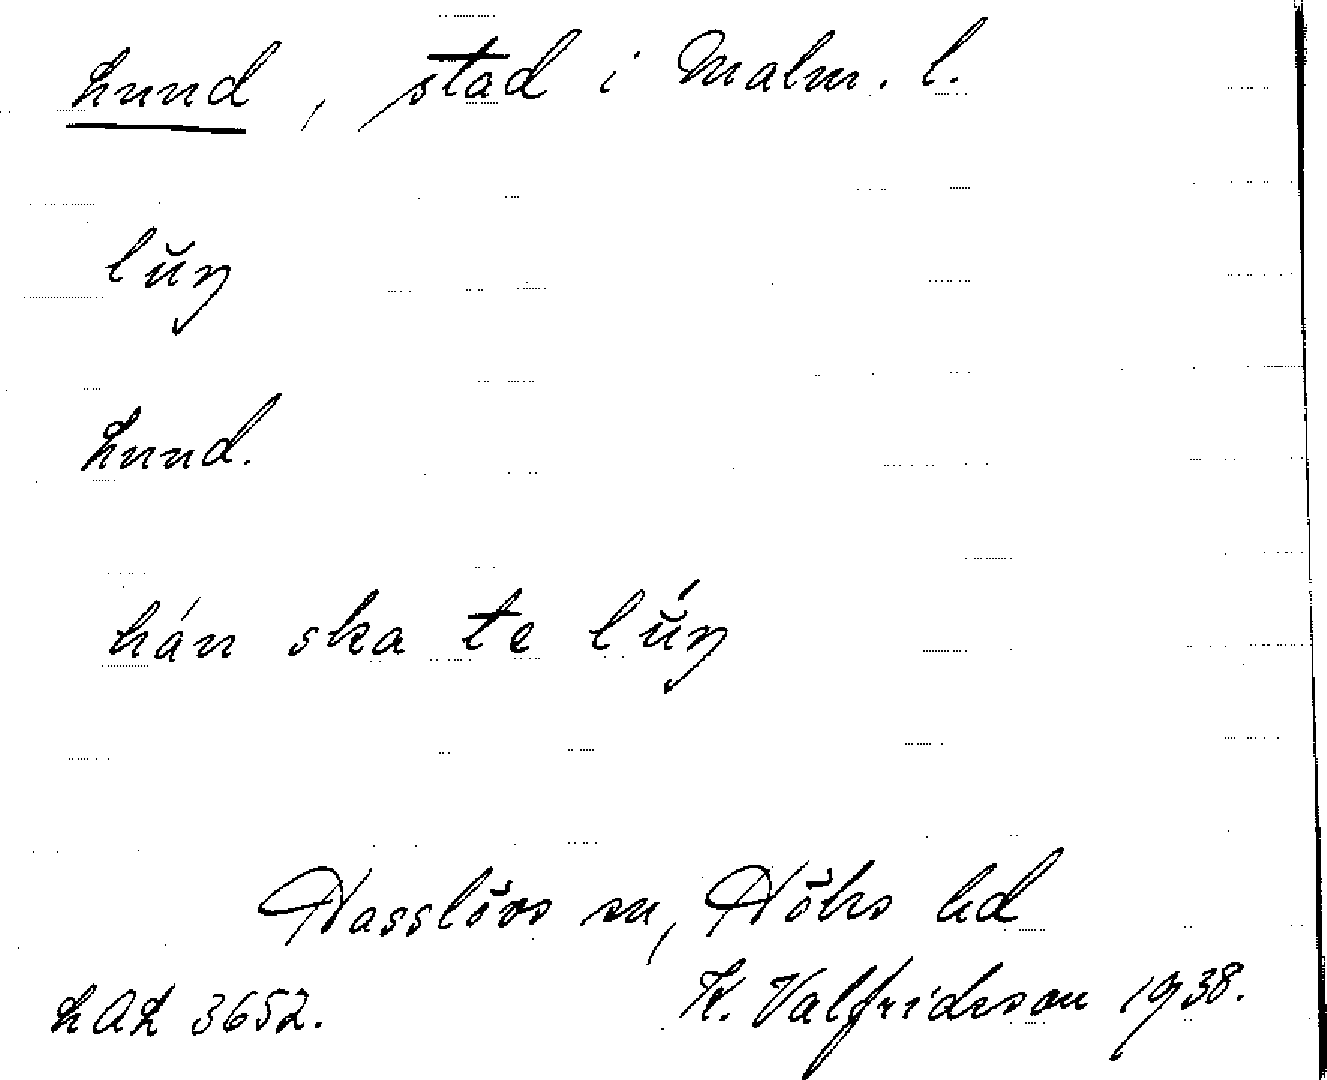 Lund, stad i Malm. l.
lŭɳ
Lund.
hán ska te lŭ́ɳ
Hasslövs sn, Höks hd
LAL 3652. K. Valfridsson 1938.